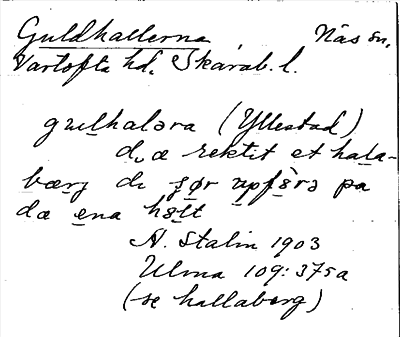 Guldhallerna Näs sn,
Vartofta hd, Skarab. l.
gulhaləra (Yllestad)
d, æ rektit et hala-
bærj de jør upførə pa
dæ ena hølt
A. Stalin 1903
Ulma 109:375a
(se hallaberg)